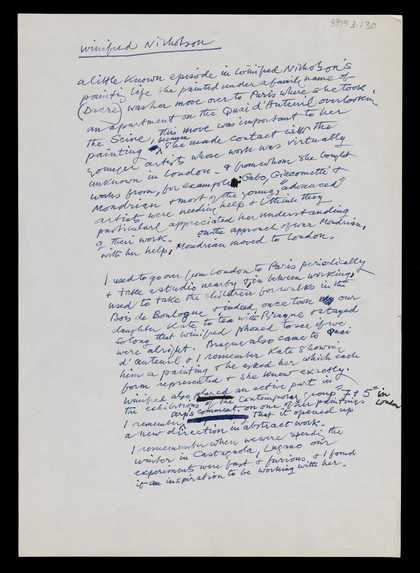 8717.1.3.130
Winifred Nicholson
A little known episode in Winifred Nicholson's
painting life (she painted under a family name of
(Dacre)) was her move over to Paris where she took
an apartment on the Quai d'Auteuil overlooking
the Seine, this move was important to her
painting because she made contact with the
younger artists whose work was virtually
unknown in London - & from whom she bought
works from, for example Gabo, Giacometti &
Mondrian & most of the young, "advanced"
artists were needing help & I think they
particularly appreciated her understanding
of their work. on the approach of war Mondrian,
with her help, Mondrian moved to London.
I used to go over from London to Paris periodically
& take a studio nearby & in between working,
used to take the children for walks in the
Bois de Boulogne & indeed once took our
daughter Kate to tea with Braque & stayed
so long that Winifred phoned to see if we
were alright. Braque also came to Quai
d'Auteuil & I remember Kate showing
him a painting & he asked her which each
form represented & she knew exactly.
Winifred also played an active part in
the exhibitions of the contemporary group "7 & 5" in London
I remember Arp's comment, on one of her paintings
that it opened up
a new direction in abstract work.
I remember when we were spending the
winter in Castagnola, Lugano our
experiments were fast & furious, & I found
it an inspiration to be working with her.